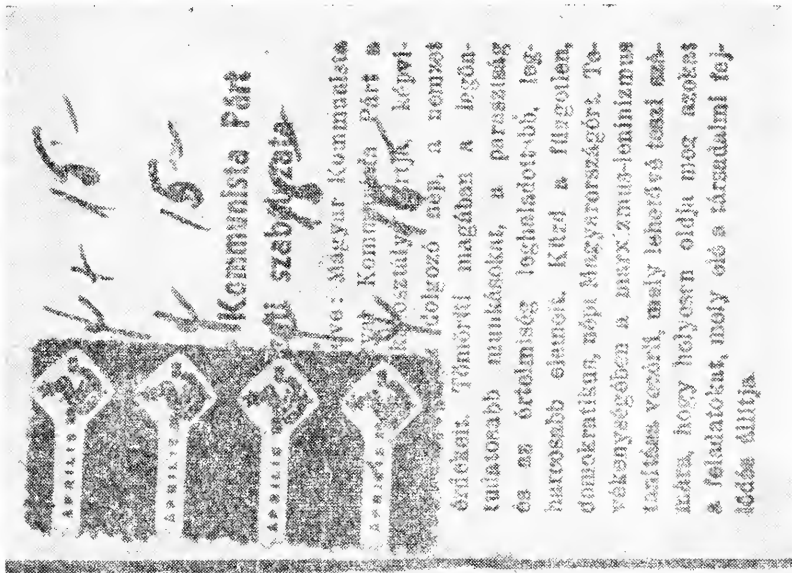 ÁPRILIS
ÁPRILIS
ÁPRILIS
ÁPRILIS
15-
15-
Kommunista Párt
szabályzata
Magyar Kommunista
Kommunista Párt a
képvi-
dolgozó nép, a nemzet
érdekeit. Tömöríti magában a legön-
tudatosabb munkásokat, a parasztság
és az értelmiség leghaladottabb, leg-
harcosabb elemeit. Küzd a független,
demokratikus, népi Magyarországért. Te-
vékenységében a marxizmus-leninizmus
tanítása vezérli, mely lehetővé teszi szá-
mára, hogy helyesen oldja meg azokat
a feladatokat, mely elé a társadalmi fej-
lődés állítja.